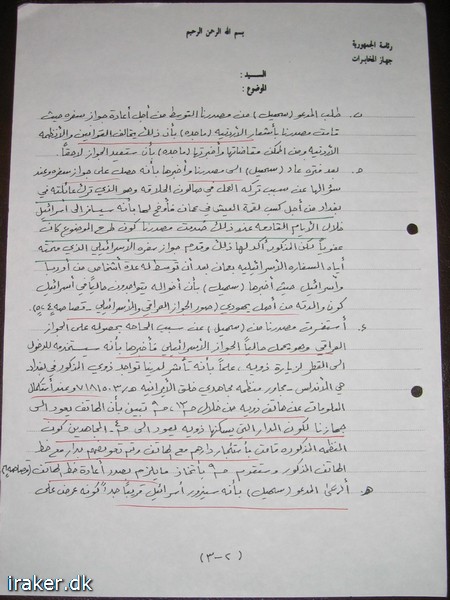 بسم الله الرحمن الرحيم
رئاسة الجمهورية
جهاز المخابرات
السيد :
الموضوع :
ن. طلب المدعو (سهيل) من مصدرنا التوسط من أجل أعادة جواز سفره حيث
قامت مصدرنا بأشعار الأردنية (ماجدة) بأن ذلك يخالف القوانين والأنظمه
الأردنية ومن الممكن مقاضاتها وأخبرتها (ماجدة) بأن ستعيد الجواز لاحقاً.
هـ. بعد فترة عاد (سهيل) الى مصدرنا وأخبرها بأنه حصل على جواز سفره وعند
سؤالها عن سبب تركه العمل في صالون الحلاقه وهو الذي ترك عائلته في
بغداد من أجل كسب لقمة العيش في عمان فأوضح لها بأنه سيسافر الى اسرائيل
خلال الأيام القادمه عند ذلك مصدرنا كون طرح الموضوع كان
عفوياً لكن المذكور أكد لها ذلك وقدم جواز سفره الأسرائيلي الذي منحته
أياه السفاره الأسرائيلية بعمان بعد أن توسط له عدة أشخاص من أوربا
وأسرائيل حيث أخبرها (سهيل) بأن أخواله يتواجدون حالياً في أسرائيل
كون والدته من أصل يهودي (صور الجواز العراقي والأسرائيلي
ع. أستفسرت مصدرنا من (سهيل) عن سبب الحاجه بحصوله على الجواز
العراقي وهو يحمل حالياً الجواز الأسرائيلي فأخبرها بأنه سيستخدمه للدخول
الى القطر لزيارة ذويه، علماً بأنه تواجد ذوي المذكور في بغداد
حي الأندلس - مجاور منظمه مجاهدي خلق الأيرانيه هـ/ ٧١٨١٥٠٣ وعند أستكمال
المعلومات عن هاتف ذويه من خلال تبين بأن الهاتف يعود الى
جهازنا لكون الدار التي يسكنها ذويه يعود الى المجاهدين كون
المنظمه المذكوره قامت بأستئجار دارهم مع الهاتف وتم تعويضهم بدار مع خط
الهاتف المذكور وستقوم بأتخاذ مايلزم بصدد أعادة خط الهاتف
هـ. أدعى المدعو (سهيل) بأنه سيزور أسرائيل قريباً جداً كونه عرض على
(٢-٣)
iraker.dk
iraker.dk